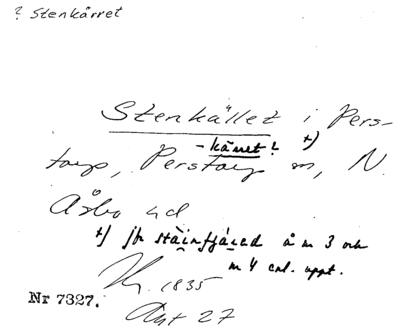 ? Stenkärret
Stenkället i Pers-
- kärret? +)
torp, Perstorp sn, N.
Åsbo hd
+) jfr å nr 3 och
nr 4 enl. uppt.
Kr. 1835
Akt 27
Nr 7327.